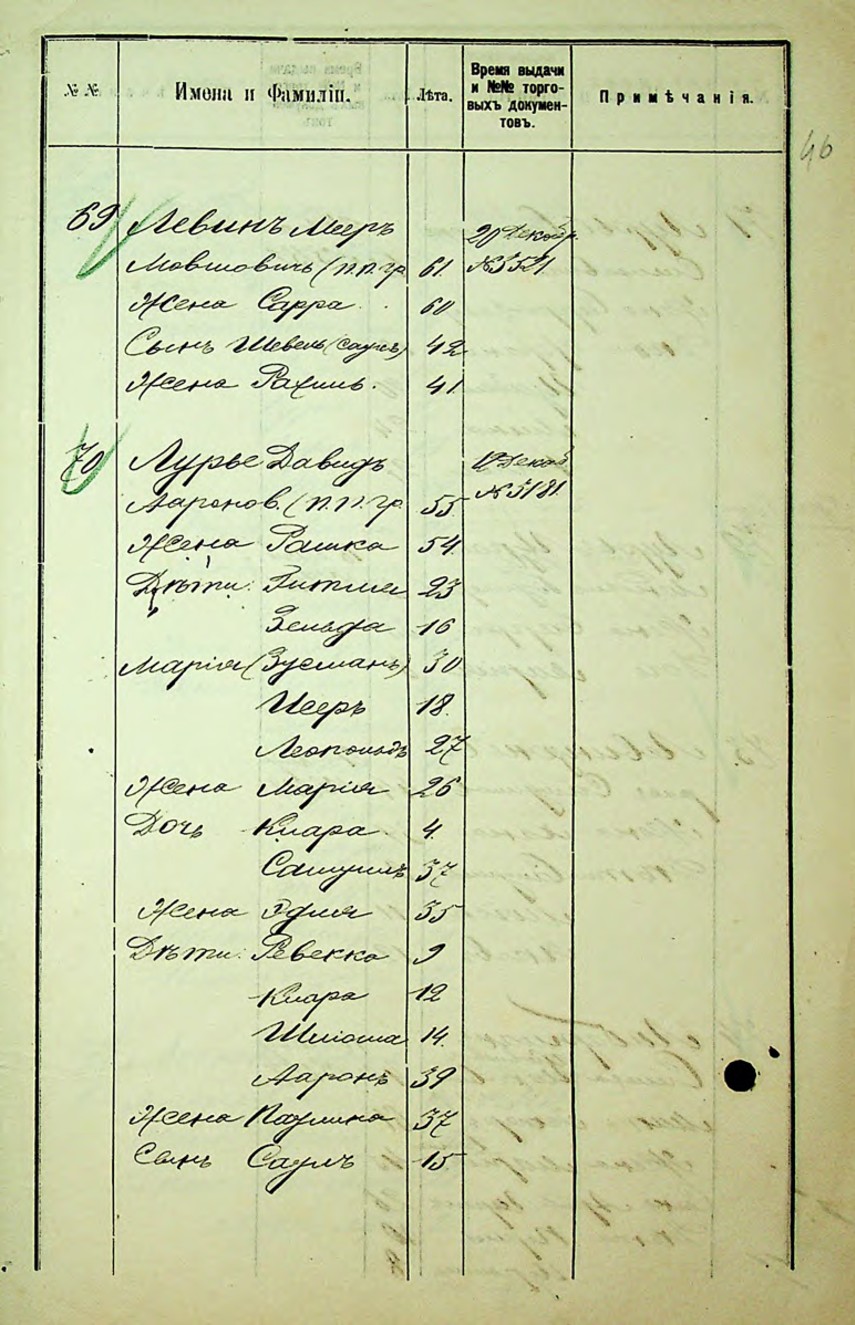 № №. Имена и Фамиліи. Лѣта. Время выдачи и №№ торговыхъ документовъ. Примѣчанія.
46
69 Левинъ Мееръ 20 Декабр.
Мовшовичъ (п.п.гр. 61. № 3521
Жена Сарра. 60
Сынъ Шевель (Саулъ) 42
Жена Рахиль. 41.
70 Лурье Давидъ 12 Декаб
Ааронов. (п.п.гр. 55. № 3181.
Жена Рашка 54.
Дѣти: Гитля 23
Зельда 16
Марія (Зусманъ) 30
Исеръ 18.
Леопольдъ 27
Жена Марія 26
Дочь Клара. 4.
Самуилъ 37
Жена Эдля 35
Дѣти: Ревекка 9
Клара 12
Шліома 14.
Ааронъ 39
Жена Паулина 37
Сынъ Саулъ 15